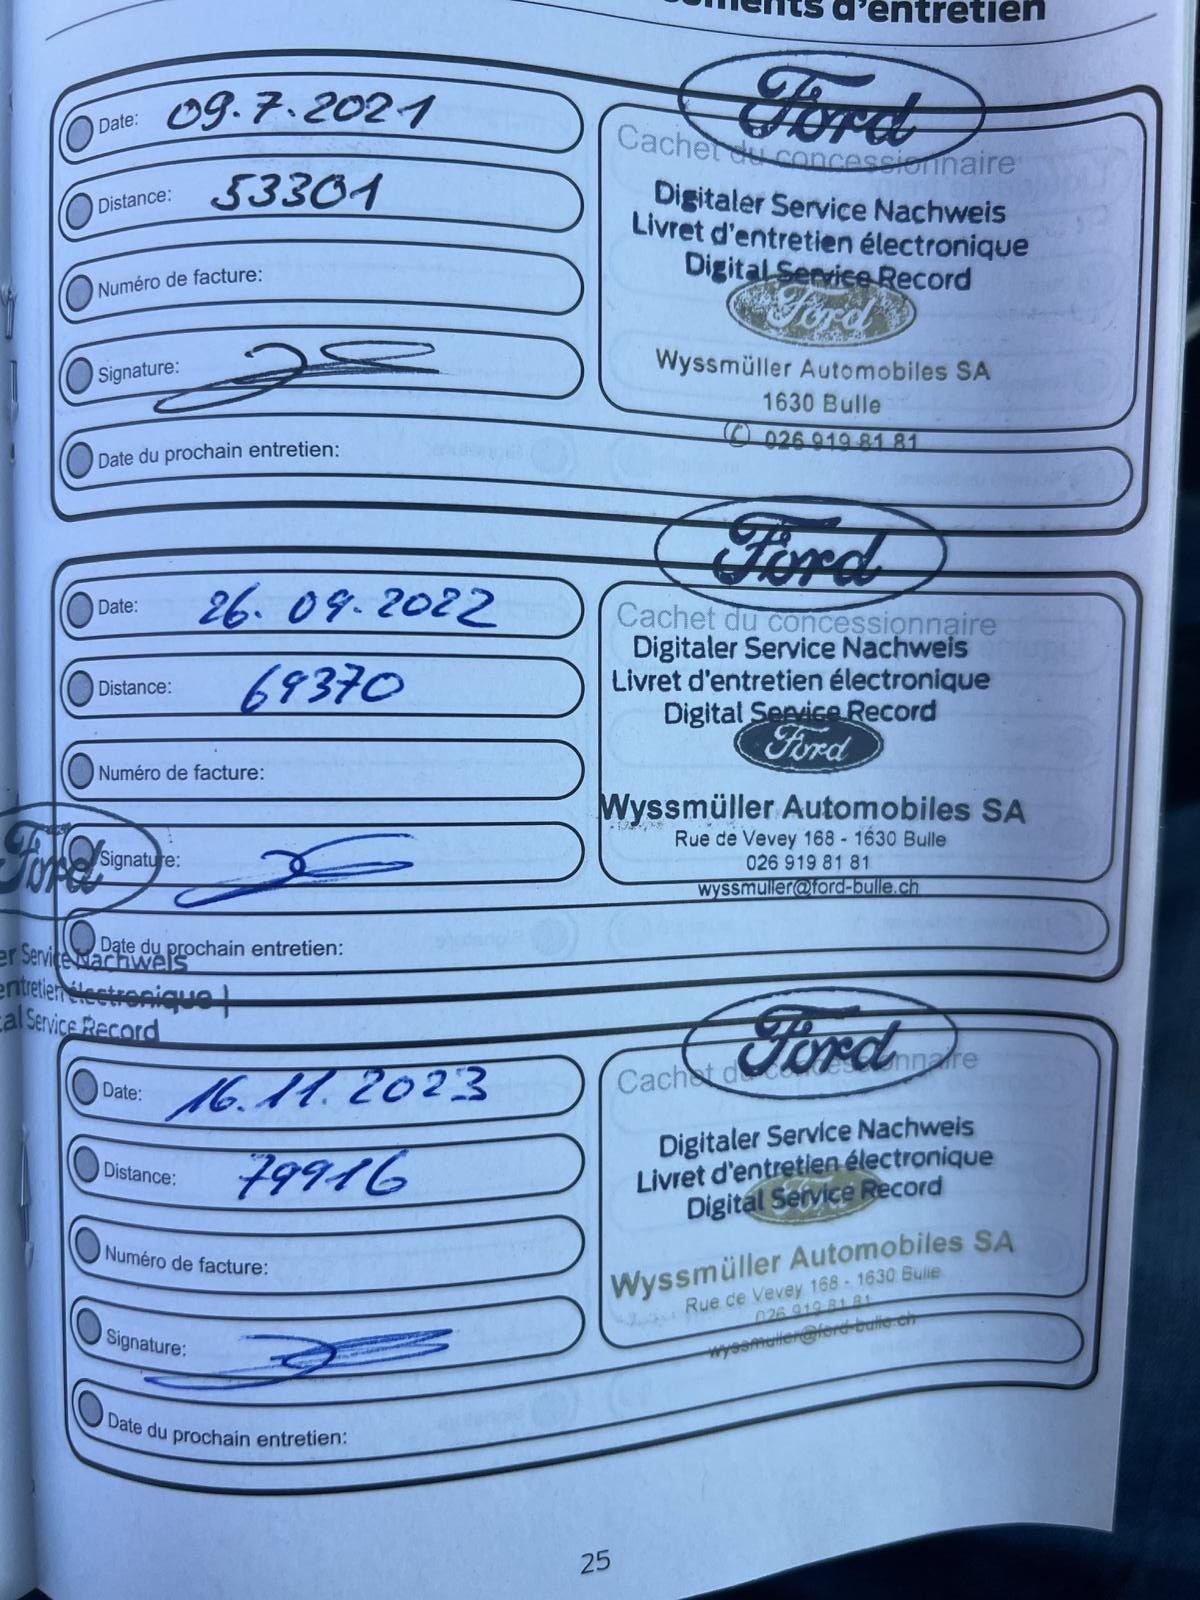 d'entretien
Date: 09.7.2021
Distance: 53301
Numéro de facture:
Signature:
Date du prochain entretien:
Ford
Cachet du concessionnaire
Digitaler Service Nachweis
Livret d'entretien électronique
Digital Service Record
Ford
Wyssmüller Automobiles SA
1630 Bulle
026 919 81 81
Date: 26.09.2022
Distance: 69370
Numéro de facture:
Signature:
Date du prochain entretien:
Ford
Cachet du concessionnaire
Digitaler Service Nachweis
Livret d'entretien électronique
Digital Service Record
Ford
Wyssmüller Automobiles SA
Rue de Vevey 168 - 1630 Bulle
026 919 81 81
wyssmuller@ford-bulle.ch
Ford
er Service Nachweis
entretien électronique |
al Service Record
Date: 16.11.2023
Distance: 79916
Numéro de facture:
Signature:
Date du prochain entretien:
Ford
Cachet du concessionnaire
Digitaler Service Nachweis
Livret d'entretien électronique
Digital Service Record
Ford
Wyssmüller Automobiles SA
Rue de Vevey 168 - 1630 Bulle
026 919 81 81
wyssmuller@ford-bulle.ch
25